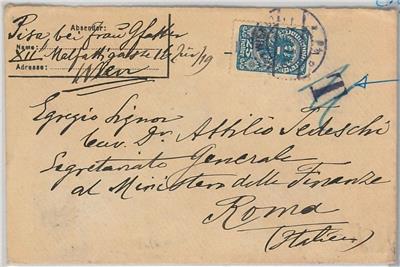 Absender:
Pisa bei frau Gfatter
Name:
XII. Malfattigasse 12 Tür/19
Adresse:
Wien
T
Egregio Signor
Cav. Dr. Attilio Tedeschi
Segretariato Generale
al Ministero delle Finanze
Roma
(Italien)